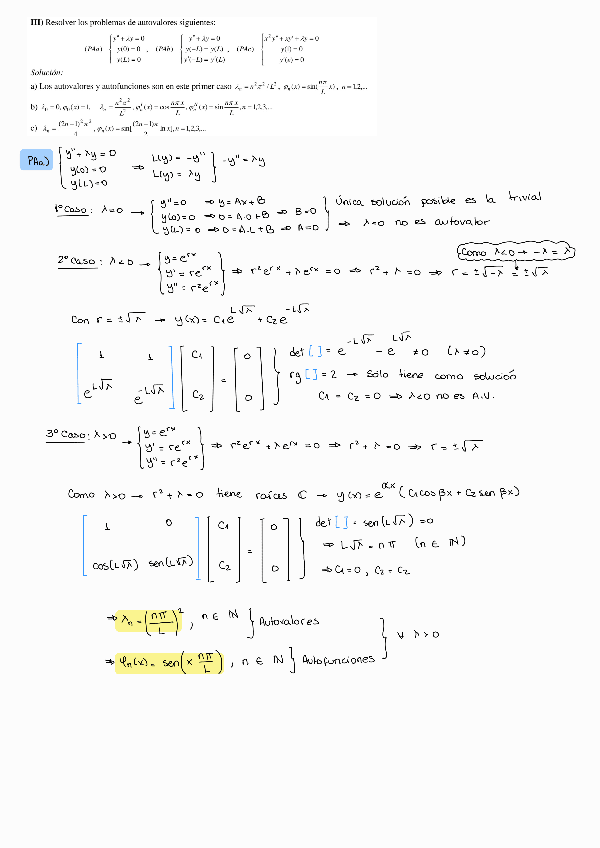 III) Resolver los problemas de autovalores siguientes:
(PAa) { y''+ λy = 0 ; y(0) = 0 ; y(L) = 0 , (PAb) { y''+ λy = 0 ; y(−L) = y(L) ; y'(−L) = y'(L) , (PAc) { x² y''+ xy'+ λy = 0 ; y(1) = 0 ; y'(e) = 0
Solución:
a) Los autovalores y autofunciones son en este primer caso λₙ = n²π² / L², φₙ(x) = sin(nπ/L x), n = 1,2,...
b) λ₀ = 0, φ₀(x) = 1, λₙ = n²π²/L², φₙ(x) = cos nπ x/L, φₙ(x) = sin nπ x/L, n = 1,2,3,...
c) λₙ = (2n−1)² π²/4, φₙ(x) = sin[(2n−1)π/2 ln x], n = 1,2,3,...
PAa) { y'' + λy = 0 ; y(0) = 0 ; y(L) = 0 ⇒ L(y) = -y'' ; L(y) = λy } -y'' = λy
1º Caso: λ=0 → { y''=0 → y = Ax+B
y(0)=0 ⇒ 0 = A·0+B ⇒ B=0
y(L)=0 ⇒ 0 = A·L+B ⇒ A=0
} Única solución posible es la trivial
⇒ λ=0 no es autovalor
Como λ<0 → -λ = λ
2º Caso: λ<0 → { y = e^rx ; y' = re^rx ; y'' = r²e^rx } ⇒ r²e^rx + λe^rx = 0 ⇒ r² + λ = 0 ⇒ r = ±√-λ = ±√λ
Con r = ±√λ → y(x) = C₁e^L√λ + C₂e^-L√λ
[ 1 1 ; e^L√λ e^-L√λ ] [ C₁ ; C₂ ] = [ 0 ; 0 ]
det [ ] = e^-L√λ - e^L√λ ≠ 0 (λ≠0)
rg [ ] = 2 → Sólo tiene como solución
C₁ = C₂ = 0 ⇒ λ<0 no es A.V.
3º Caso: λ>0 → { y = e^rx ; y' = re^rx ; y'' = r²e^rx } ⇒ r²e^rx + λe^rx = 0 ⇒ r² + λ = 0 ⇒ r = ±√λ
Como λ>0 → r² + λ = 0 tiene raíces ℂ → y(x) = e^αx (C₁cos βx + C₂ sen βx)
[ 1 0 ; cos(L√λ) sen(L√λ) ] [ C₁ ; C₂ ] = [ 0 ; 0 ]
det [ ] = sen(L√λ) = 0
⇒ L√λ = nπ (n ∈ ℕ)
⇒ C₁=0, C₂ = C₂
⇒ λₙ = (nπ/L)², n ∈ ℕ } Autovalores
∀ λ>0
⇒ φₙ(x) = sen(x nπ/L), n ∈ ℕ } Autofunciones